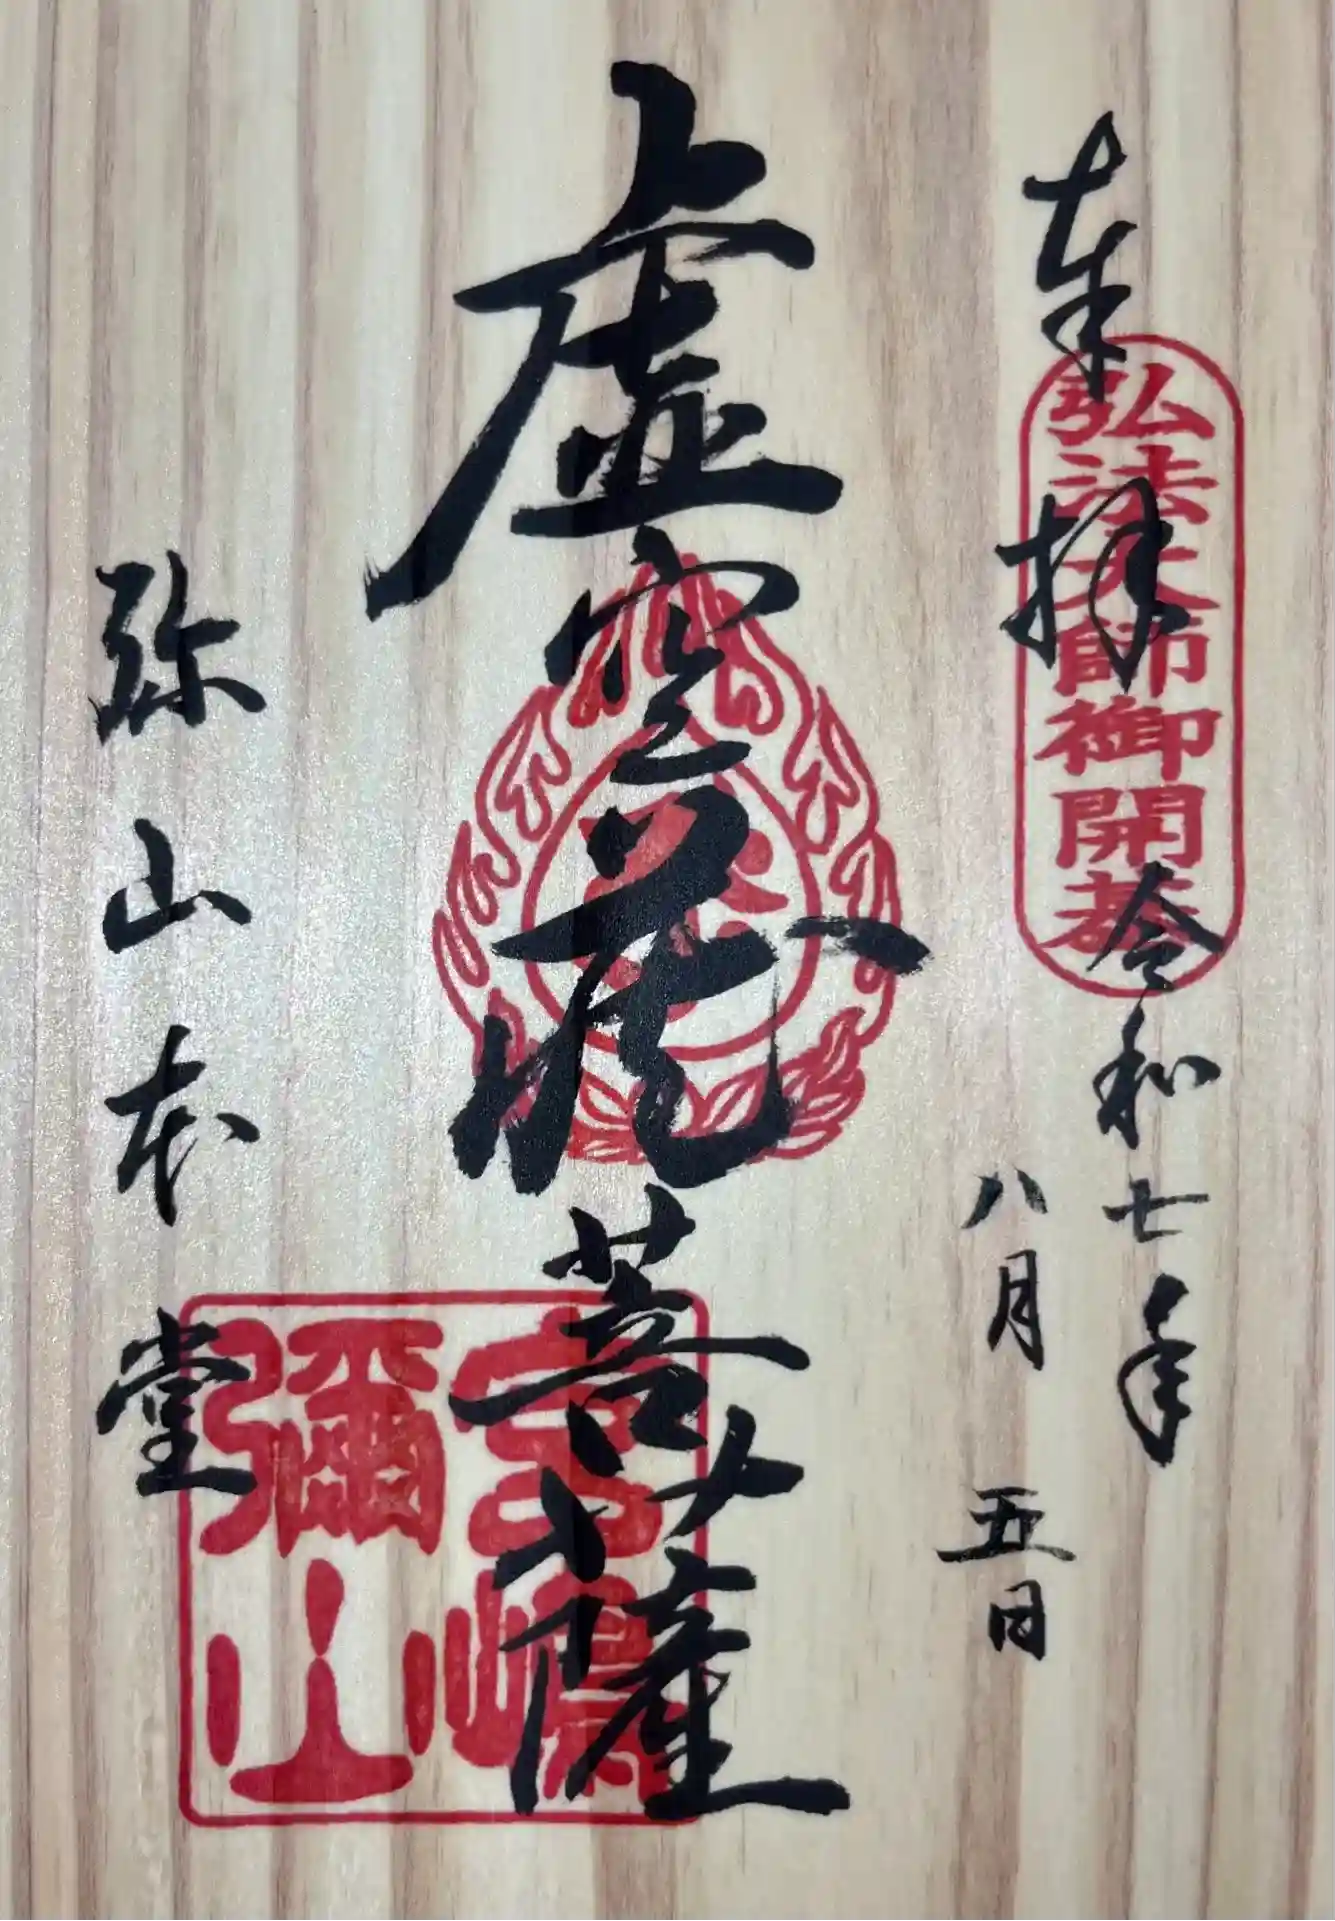 奉拝
弘法大師御開基
令和七年
八月五日
虚空蔵菩薩
宮嶋
彌山
弥山本堂